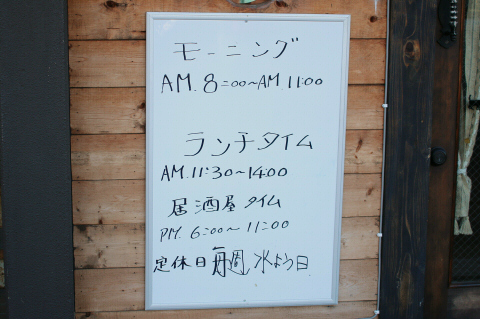 モーニング
AM. 8:00～AM. 11:00
ランチタイム
AM. 11:30～14:00
居酒屋タイム
PM. 6:00～11:00
定休日 毎週 水よう日